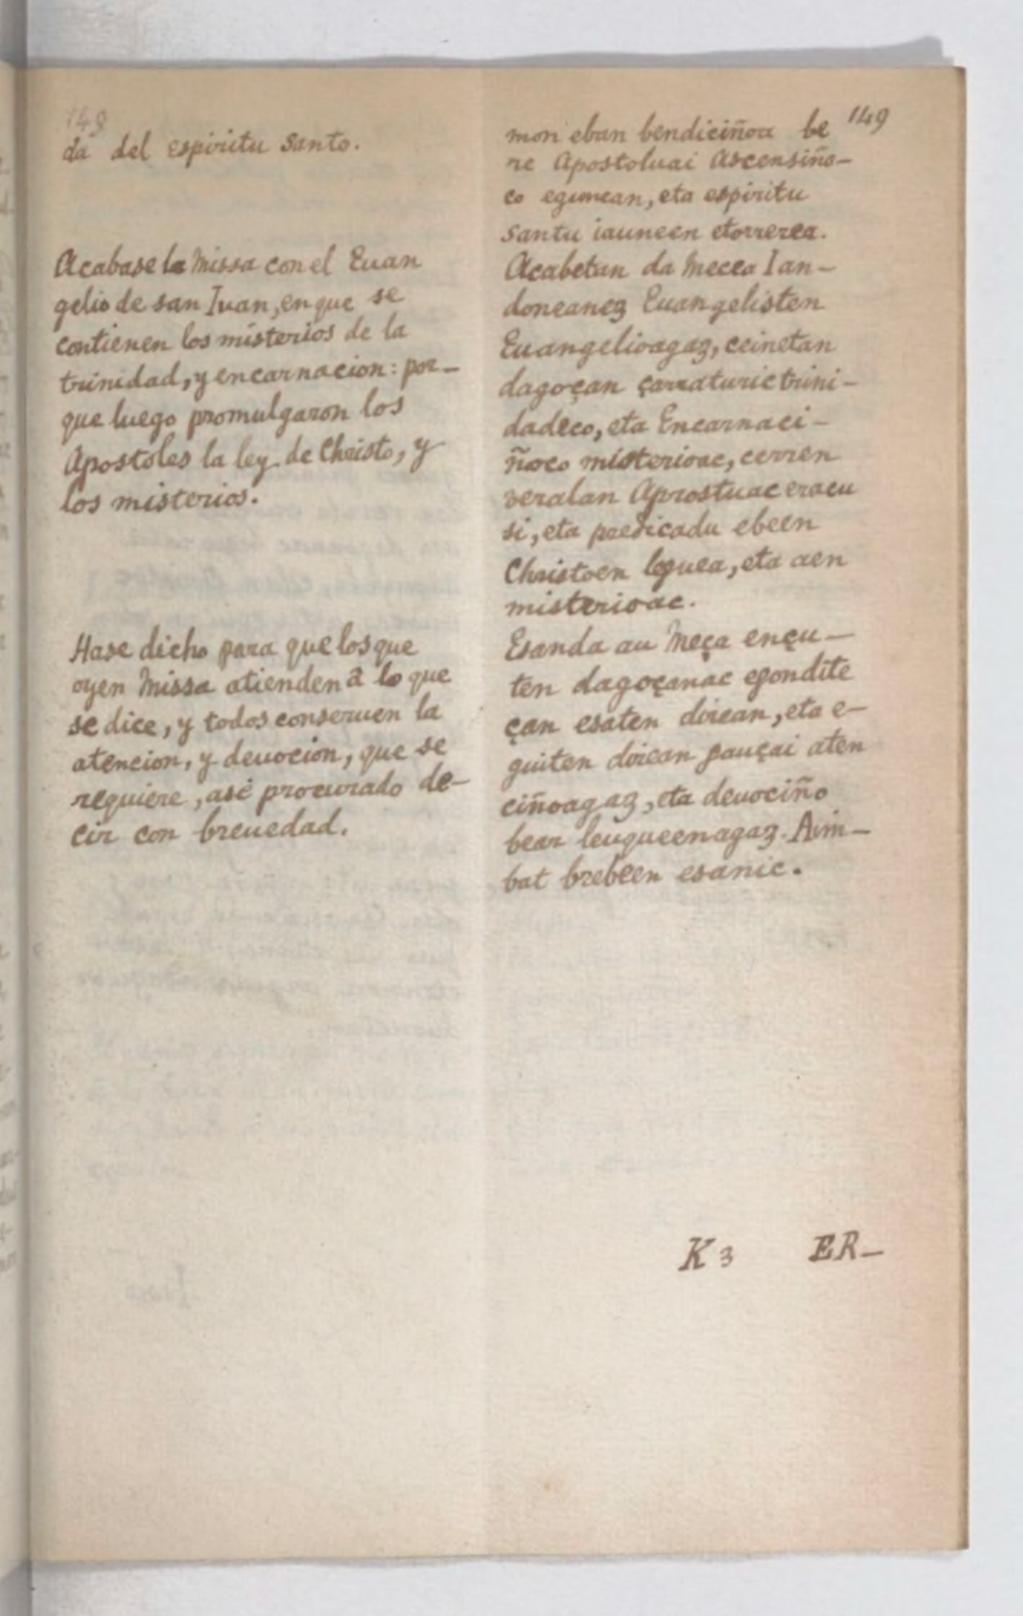 149
da del espiritu Santo.
Acabase la Missa con el Euan
gelio de san Iuan, en que se
contienen los misterios de la
trinidad, y encarnacion: por-
que luego promulgaron los
Apostoles la ley de Christo, y
los misterios.
Hase dicho para que los que
oyen Missa atienden a lo que
se dice, y todos conseruen la
atencion, y deuocion, que se
requiere, asé procurado de-
cir con breuedad.
149
mon eban bendiciñoa be
re Apostoluai Ascensiño-
co egunean, eta espiritu
Santu iauneen etorrerea.
Acabetan da Mecea Ian-
doneanez Euangelisten
Euangelioagaz, ceinetan
dagoçan çarraturic trini-
dadeco, eta Encarnaci-
ñoco misterioac, cerren
veralan Aprostuac eracu
si, eta predicadu ebeen
Christoen leguea, eta aen
misterioac.
Esanda au Meça ençu-
ten dagoçanac egondite
çan esaten direan, eta e-
guiten direan gauçai aten
ciñoagaz, eta deuociño
bear leuqueenagaz. Aim-
bat brebeen esanic.
K3 ER-